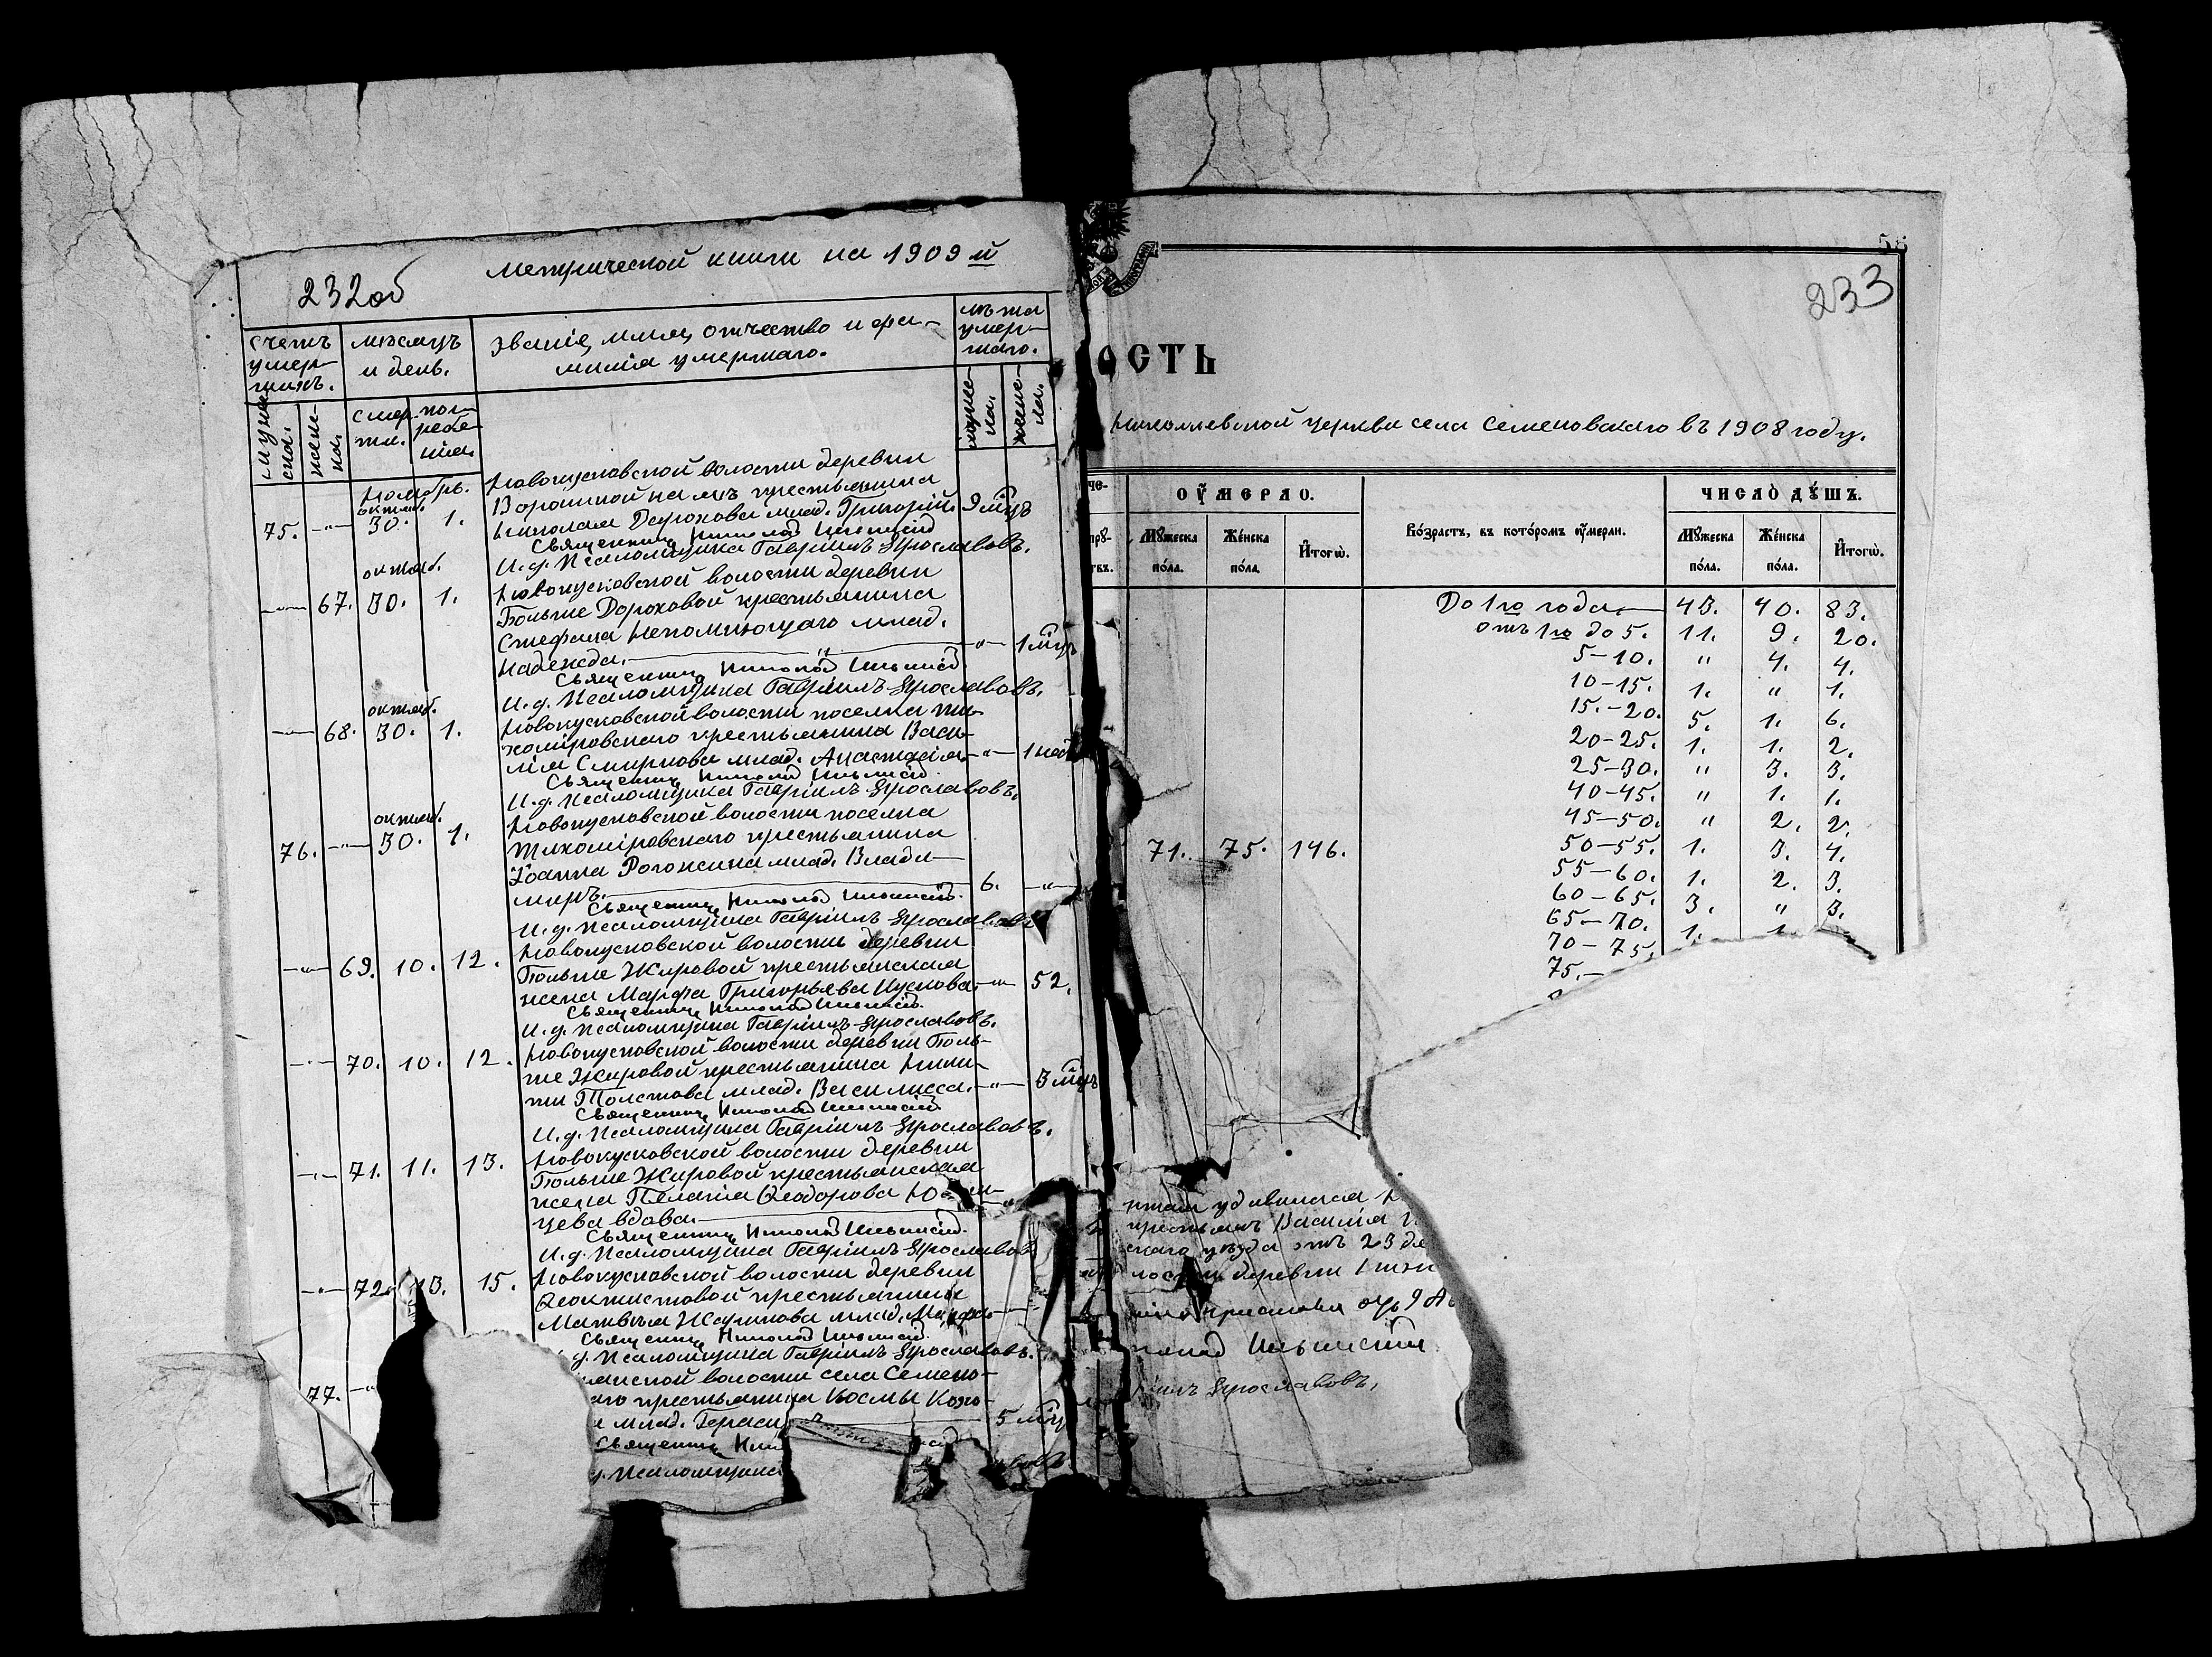 232об
Метрической книги на 1909 й
Счетъ умер-
шихъ.
мѣсяцъ
и день.
Званіе, имя, отчество и фа-
милія умершаго.
Лѣта
умер-
шаго.
мужеска.
женска.
смер-
ти.
погребе-
нія.
мужеска.
женска.
Ноябрь.
Новокусковской волости деревни
Ворониной на яѣ крестьянина
75. -"- октяб. 30. 1. Николая Дорохова млад. Григорій. 9 мцъ
Священникъ Николай Ильинскій
И.д. Псаломщика Гавріилъ Ярославовъ.
Новокусковской волости деревни
-"- 67. октяб. 30. 1. Больше Дороховой крестьянина
Стефана Непомнющаго млад.
Надежда. -"- 1 мцъ
Священникъ Николай Ильинскій
И.д. Псаломщика Гавріилъ Ярославовъ.
-"- 68. октяб. 30. 1. Новокусковской волости поселка Ти-
хоміровскаго крестьянина Васи-
лія Смирнова млад. Анастасія. -"- 1 нед
Священникъ Николай Ильинскій
И.д. Псаломщика Гавріилъ Ярославовъ.
Новокусковской волости поселка
76. -"- октяб. 30. 1. Тихоміровскаго крестьянина
Іоанна Рогожина млад. Влади-
миръ. 6. -"-
Священникъ Николай Ильинскій
И.д. Псаломщика Гавріилъ Ярославовъ
-"- 69. 10. 12. Новокусковской волости деревни
Больше Жировой крестьянская
жена Марфа Григорьева Кускова. -"- 52.
Священникъ Николай Ильинскій
И.д. Псаломщика Гавріилъ Ярославовъ.
-"- 70. 10. 12. Новокусковской волости деревни Боль-
ше Жировой крестьянина Ники-
ты Толстова млад. Василисса. -"- 3 мцъ
Священникъ Николай Ильинскій
И.д. Псаломщика Гавріилъ Ярославовъ.
-"- 71. 11. 13. Новокусковской волости деревни
Больше Жировой крестьянская
жена Пелагія Ѳеодорова
цева вдова.
Священникъ Николай Ильинскій
И.д. Псаломщика Гавріилъ Ярославов
-"- 72. 13. 15. Новокусковской волости деревни
Ѳеоктистовой крестьянина
Матвѣя Жаринова млад. Марѳа
Священникъ Николай Ильинскій
д. Псаломщика Гавріилъ Ярославовъ.
волости села Семено-
77. -"- аго крестьянина Космы
млад. Гераси 5 мцъ
Священникъ Ник
д. Псаломщика
56
233
ОСТЬ
Николаевской церкви села Семеновскаго въ 1908 году.
Оу҆мерло.
Возрастъ, въ которомъ оу҆мерли.
Число душъ.
Мꙋжеска пола. Женска пола. Итогѡ.
Мꙋжеска пола. Женска пола. Итогѡ.
71. 75. 146.
До 1го года. 43. 40. 83.
отъ 1го до 5. 11. 9. 20.
5-10. " 4. 4.
10-15. 1. " 1.
15.-20. 5. 1. 6.
20-25. 1. 1. 2.
25-30. " 3. 3.
40-45. " 1. 1.
45-50. " 2. 2.
50-55. 1. 3. 4.
55-60. 1. 2. 3.
60-65. 3. " 3.
65-70. 1. 1.
70-75.
75.-
крестьянъ Василія
скаго уѣзда отъ 23 де
деревни
пристава отъ 9 Ав
Ильинскій
Ярославовъ,